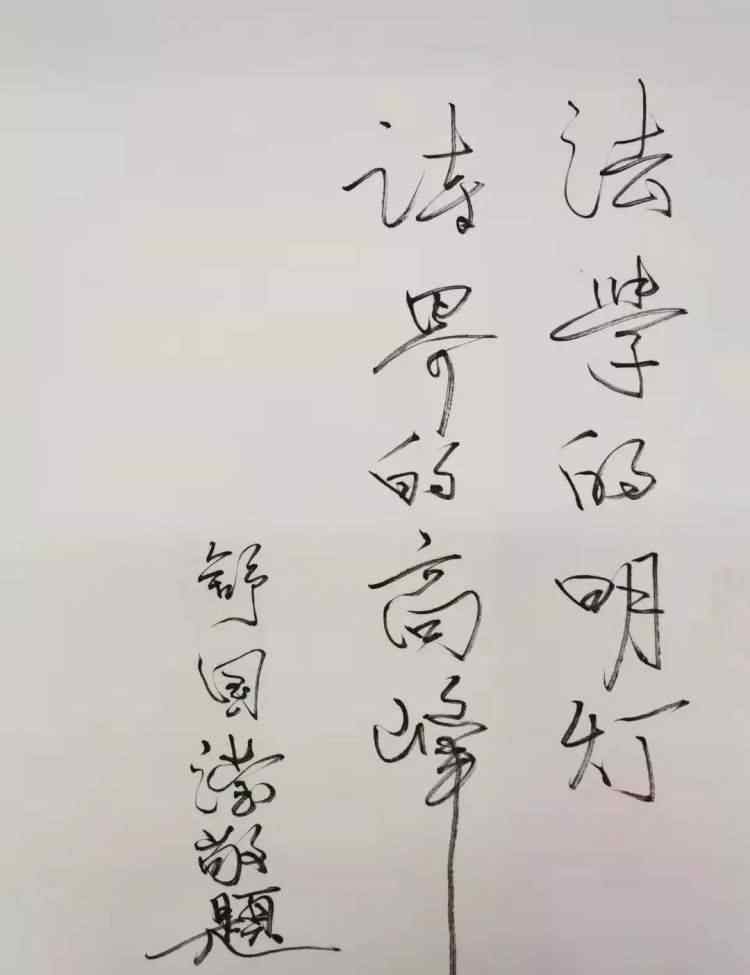 法学的明灯
诗界的高峰
舒国滢敬题